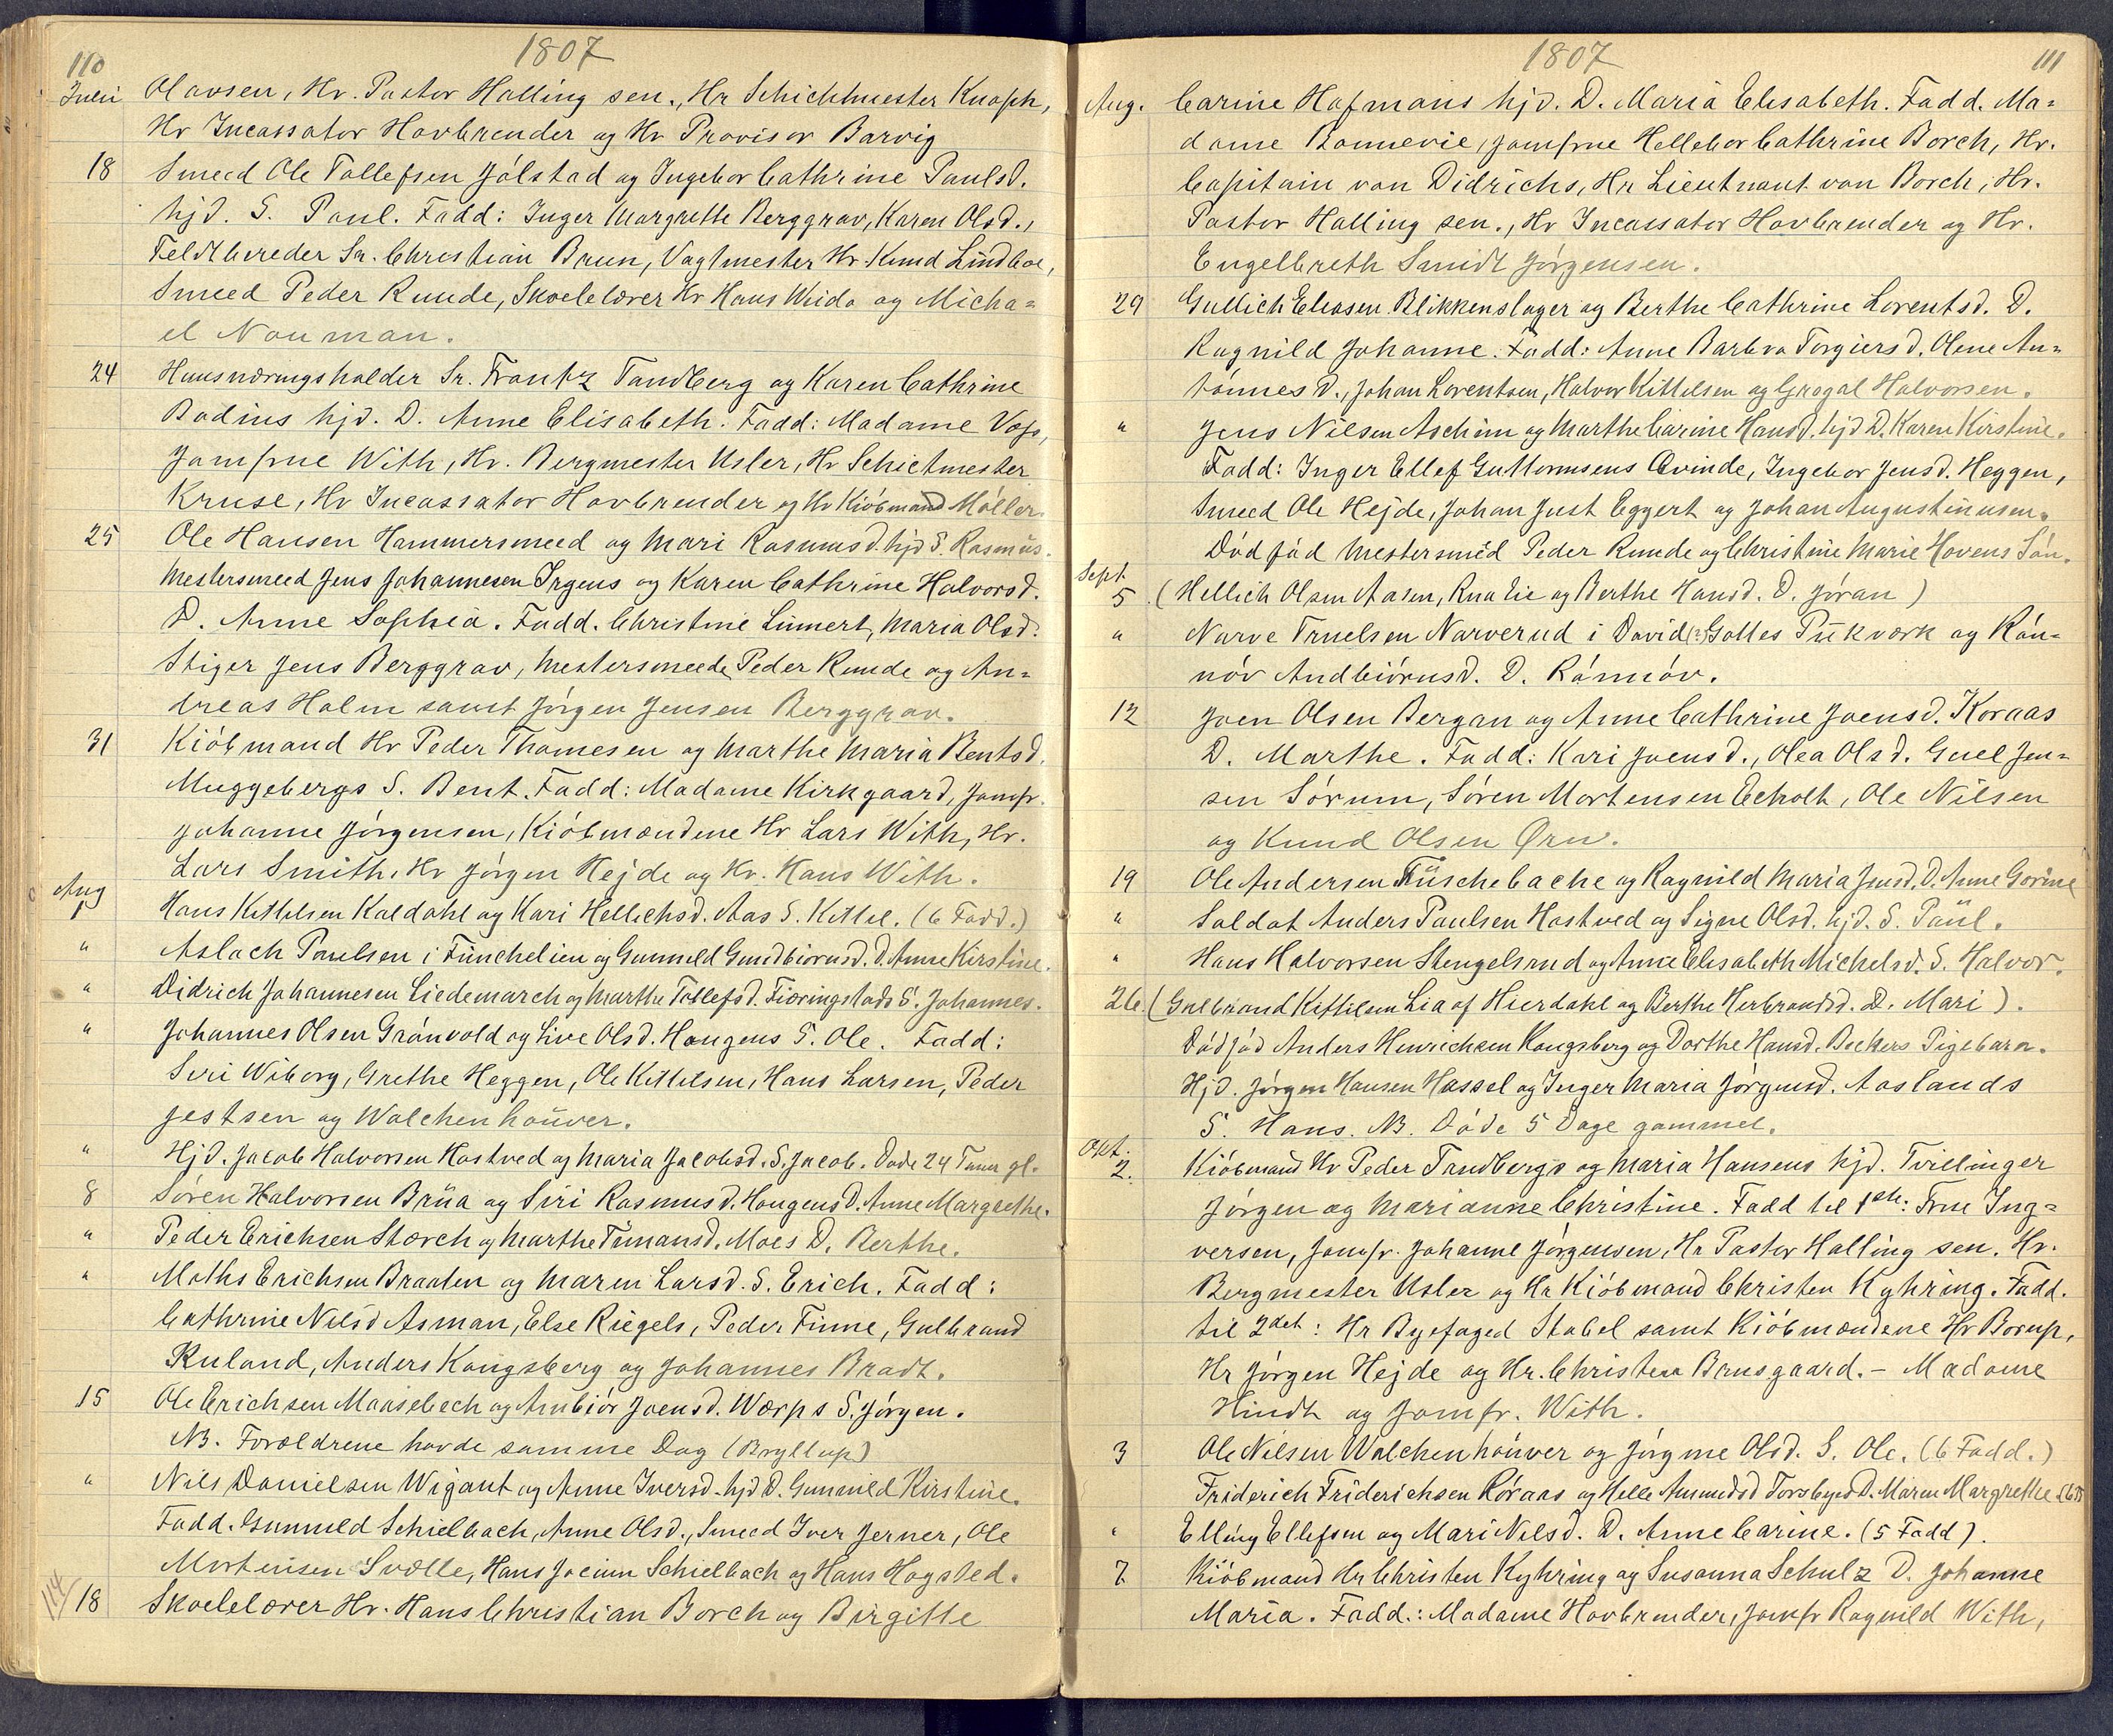 110
1807
Juli Olavsen, Hr. Pastor Halling sen., Hr Schichtmester Knoph,
Hr Incassator Havbrender og Hr Provisor Barvig
18 Smeed Ole Tollefsen Jólstad og Ingebor Cathrine Paulsd.
hjd. S. Poul. Fadd: Inger Margrethe Berggrav, Karen Olsd.,
Feldtbereder Sr. Christian Bruun, Vagtmester Hr Knud Lindboe,
Smeed Peder Runde, Skoelelærer Hr Hans Weido og Micha=
el Nouman.
24 Huusnæringsholder Sr. Frantz Tandberg og Karen Cathrine
Bodins hjd. D. Anne Elisabeth. Fadd: Madame Vogs,
Jomfrue With, Hr. Bergmester Usler, Hr Schictmester
Kruse, Hr Incassator Havbrender og Hr Kiöbmand Möller.
25 Ole Hansen Hammersmeed og Mari Rasmusd. hjd S. Rasmus.
Mestersmeed Jens Johannesen Irgens og Karen Cathrine Halvorsd.
D. Anne Sophia. Fadd. Christine Linnert, Maria Olsd.
Stiger Jens Berggrav, Mestersmeede Peder Runde og An=
dreas Holm samt Jörgen Jensen Berggrav.
31 Kiöbmand Hr Peder Thomesen og Marthe Maria Bentsd.
Muggebergs S. Bent. Fadd: Madame Kirkgaard, Jomfr.
Johanne Jörgensen, Kiöbmændene Hr Lars With, Hr.
Lars Smith, Hr Jörgen Hejde og Hr. Hans With.
Aug
1 Hans Kittilsen Koldahl og Kari Hellichsd. Aas S. Kittil. (6 Fadd.)
" Aslach Poulsen i Funchelien og Gunnild Gundbiornsd. D. Anne Kirstine.
" Didrich Johannesen Liedemarch og Marthe Tollefsd. Fioringstads S. Johannes.
" Johannes Olsen Grönvold og Live Olsd. Hougens S. Ole. Fadd:
Siri Wiborg, Grethe Heggen, Ole Kittilsen, Hans Larsen, Peder
Jestsen og Walchenhouver.
" Hjd. Jacob Halvorsen Hostved og Maria Jacobsd. S. Jacob. Døde 24 Timer gl.
8 Søren Halvorsen Brüa og Siri Rasmusd. Hougens D. Anne Margrethe.
" Peder Erichsen Storch og Marthe Timansd. Moes D. Berthe.
" Maths Erichsen Braaten og Maren Larsd. S. Erich. Fadd:
Cathrine Nilsd Asman, Else Riegels, Peder Finne, Gulbrand
Ruland, Anders Kongsberg og Johannes Bradt.
15 Ole Erichsen Maasebech og Anbiör Joensd. Wærps S. Jörgen.
NB. Forældrene havde samme Dag (Bryllup)
" Nils Danielsen Wigant og Anne Iversd. hjd D. Gunnild Kirstine.
Fadd. Gunnild Schielbach, Anne Olsd., Smeed Iver Jerner, Ole
Mortensen Svølle, Hans Jocum Schielbach og Hans Hogsted.
114/
18 Skoelelærer Hr. Hans Christian Borch og Birgitte
1807
111
Aug. Carine Hofmans hjd. D. Maria Elisabeth. Fadd. Ma=
dame Bonnevie, Jomfrue Hellebor Cathrine Borch, Hr.
Capitain von Didrichs, Hr Lieutnant von Borch, Hr.
Pastor Halling sen., Hr Incassator Havbrender og Hr.
Engelbreth Smidt Jörgensen.
29 Gullich Eliasen Blikkenslager og Berthe Cathrine Lorentsd. D.
Ragnild Johanne. Fadd: Anne Barbra Torgiersd. Olene An=
tönnes D., Johan Lorentsen, Halvor Kittilsen og Halvorsen.
" Jens Nilsen Aschim og Marthe Carine Hansd. hjd D. Karen Kirstine.
Fadd: Inger Ellef Guttormsens Qvinde, Ingebor Jensd. Heggen,
Smeed Ole Hejde, Johan Just Eggert og Johan Augustinusen.
Dödföd Mestersmed Peder Runde og Christine Marie Hovens Sön.
Sept
5 (Hellich Olsen Aasen, og Berthe Hansd. D. Jöran)
" Narve Truelsen Narverud i David(?) Gottes Pukværk og Rön=
növ Andbiörnsd. D. Rönnöv.
12 Joen Olsen Bergan og Anne Cathrine Joensd. Koraas
D. Marthe. Fadd: Kari Joensd., Olea Olsd. Guel Jen=
sen Sörum, Sören Mortensen Echolt, Ole Nilsen
og Knud Olsen Ørn.
19 Ole Andersen Füschebache og Ragnild Maria Jensd. D. Anne Gorine
" Soldat Anders Paulsen Hostved og Signe Olsd. hjd. S. Paül.
" Hans Halvorsen Stengelsrud og Anne Elisabeth Michelsd. S. Halvor.
26. (Gulbrand Kittilsen Lia af Hierdahl og Berthe Herbrandsd. D. Mari).
Dödföd Anders Henrichsen Kongsberg og Dorthe Hansd. Beckers Pigebarn.
Hjd. Jörgen Hansen Hassel og Inger Maria Jörgensd. Aaslands
S. Hans. NB. Döde 5 Dage gammel.
Okt.
2. Kiöbmand Hr Peder Tandbergs og Maria Hansens hjd. Tvillinger
Jörgen og Marianne Christine. Fadd til 1ste: Frue Ing=
versen, Jomfr. Johanne Jörgensen, Hr Pastor Halling sen. Hr.
Bergmester Usler og Hr Kiöbmand Christen Kyhring. Fadd.
til 2det: Hr Byefoged Stabel samt Kiöbmændene Hr Borup,
Hr Jörgen Hejde og Hr. Christen Brusgaard. – Madame
Hindt og Jomfr. With.
3 Ole Nilsen Walchenhouver og Jörgine Olsd. S. Ole. (6 Fadd.)
Friderich Friderichsen Röraas og Helle Amundsd Torsbyes D. Maren Margrethe
" Elling Ellefsen og Mari Nilsd. D. Anne Carine. (5 Fadd).
7 Kiöbmand Hr Christen Kyhring og Susanna Schulz D. Johanne
Maria. Fadd.: Madame Havbrender, Jomfr Ragnild With,